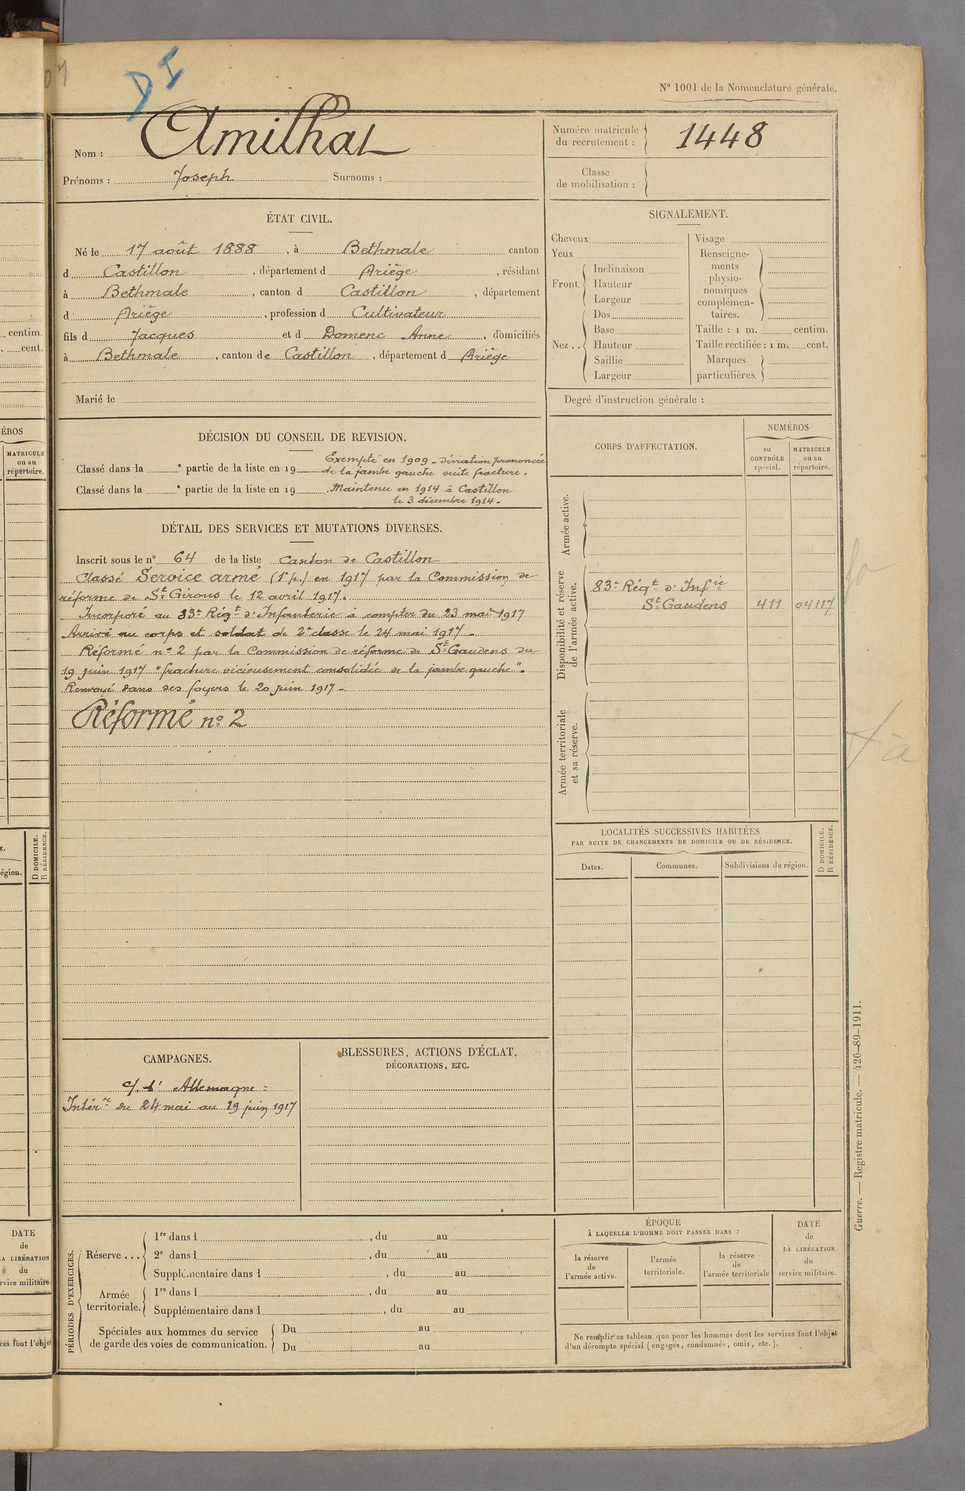 DI
N° 1001 de la Nomenclature générale.
Nom : Amilhat
Prénoms : Joseph Surnoms :
Numéro matricule du recrutement : 1448
Classe de mobilisation :
ÉTAT CIVIL.
Né le 17 août 1888, à Bethmale canton
d Castillon, département d Ariège, résidant
à Bethmale, canton d Castillon, département
d Ariège, profession d Cultivateur
fils d Jacques et d Domenc Anne, domiciliés
à Bethmale, canton de Castillon, département d Ariège
Marié le
SIGNALEMENT.
Cheveux
Yeux
Front. Inclinaison
Hauteur
Largeur
Nez .. Dos
Base
Hauteur
Saillie
Largeur
Visage
Renseigne-
ments
physio-
nomiques
complémen-
taires.
Taille : 1 m. centim.
Taille rectifiée : 1 m. cent.
Marques
particulières.
Degré d'instruction générale :
DÉCISION DU CONSEIL DE REVISION.
Classé dans la e partie de la liste en 19 Exempté en 1909 - déviation prononcée
de la jambe gauche suite fracture.
Classé dans la e partie de la liste en 19 Maintenu en 1914 à Castillon
le 3 décembre 1914.
DÉTAIL DES SERVICES ET MUTATIONS DIVERSES.
Inscrit sous le n° 64 de la liste Canton de Castillon
Classé Service armé (1e p.) en 1917 par la Commission de
réforme de St Girons le 12 avril 1917.
Incorporé au 83e Régt d'Infanterie à compter du 23 mai 1917
Arrivé au corps et soldat de 2e classe le 24 mai 1917.
Réformé n° 2 par la Commission de réforme de St Gaudens du
19 juin 1917 "fracture vicieusement consolidée de la jambe gauche".
Renvoyé dans ses foyers le 20 juin 1917.
Réformé n° 2
CORPS D'AFFECTATION.
NUMÉROS
au
CONTRÔLE
spécial.
MATRICULE
ou au
répertoire.
Armée active.
Disponibilité et réserve
de l'armée active.
83e Régt d'Infie
St Gaudens 411 04117
Armée territoriale
et sa réserve.
LOCALITÉS SUCCESSIVES HABITÉES
PAR SUITE DE CHANGEMENTS DE DOMICILE OU DE RÉSIDENCE.
Dates. Communes. Subdivisions de région.
D DOMICILE.
R RÉSIDENCE.
CAMPAGNES.
C/ l'Allemagne =
Intérre du 24 mai au 19 juin 1917
BLESSURES, ACTIONS D'ÉCLAT,
DÉCORATIONS, ETC.
PÉRIODES D'EXERCICES.
Réserve ... 1re dans l , du au
2e dans l , du au
Supplémentaire dans l , du au
Armée
territoriale. 1re dans l , du au
Supplémentaire dans l , du au
Spéciales aux hommes du service
de garde des voies de communication. Du au
Du au
ÉPOQUE
À LAQUELLE L'HOMME DOIT PASSER DANS :
la réserve
de
l'armée active.
l'armée
territoriale.
la réserve
de
l'armée territoriale
DATE
de
LA LIBÉRATION
du
service militaire.
Ne remplir ce tableau que pour les hommes dont les services font l'objet
d'un décompte spécial (engagés, condamnés, omis, etc.).
Guerre. — Registre matricule. — 426-89-1911.
centim.
cent.
ÉROS
MATRICULE
ou au
répertoire.
égion.
D DOMICILE.
R RÉSIDENCE.
DATE
de
LA LIBÉRATION
du
rvice militaire.
ces font l'objet